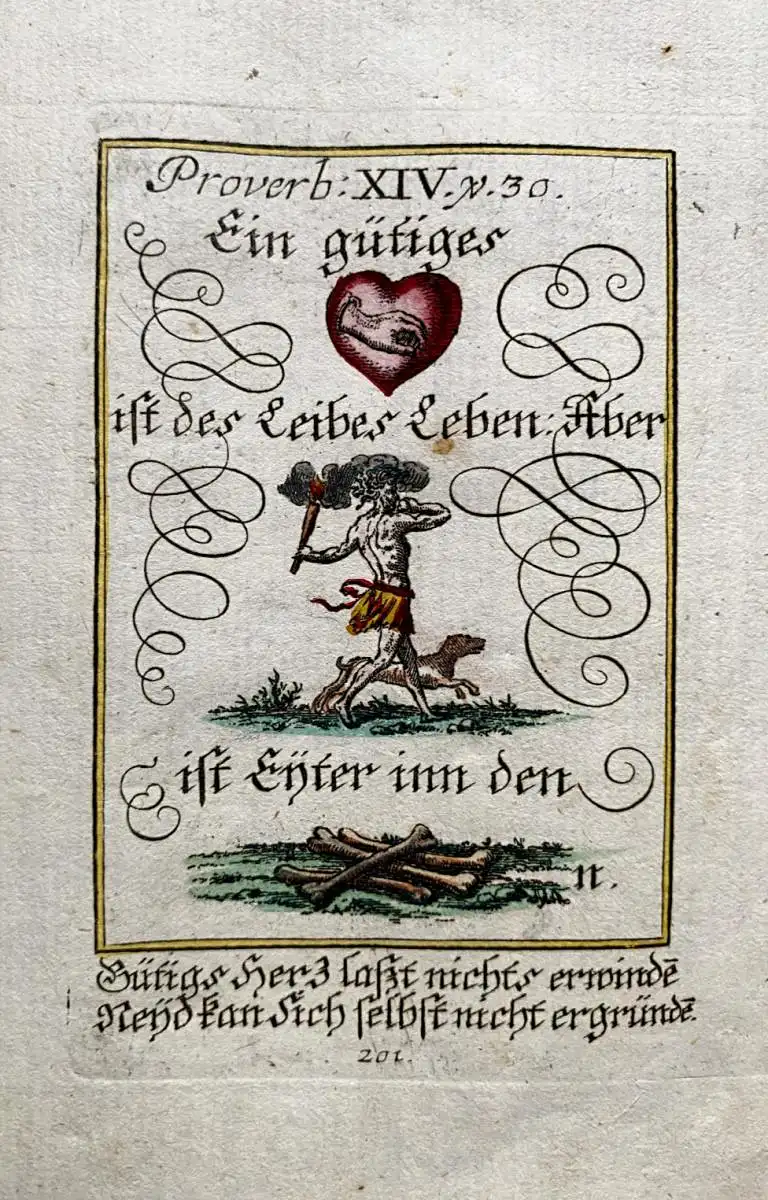 Proverb: XIV. v. 30.
Ein gütiges
ist des Leibes Leben: Aber
ist Eÿter inn den
n.
Gütigs Herz laßt nichts erwindē
Neÿd kan sich selbst nicht ergründē.
201.